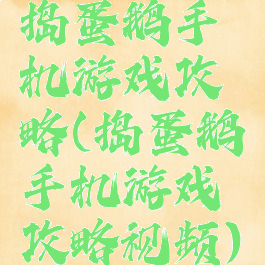 捣蛋鹅手
机游戏攻
略(捣蛋鹅
手机游戏
攻略视频)